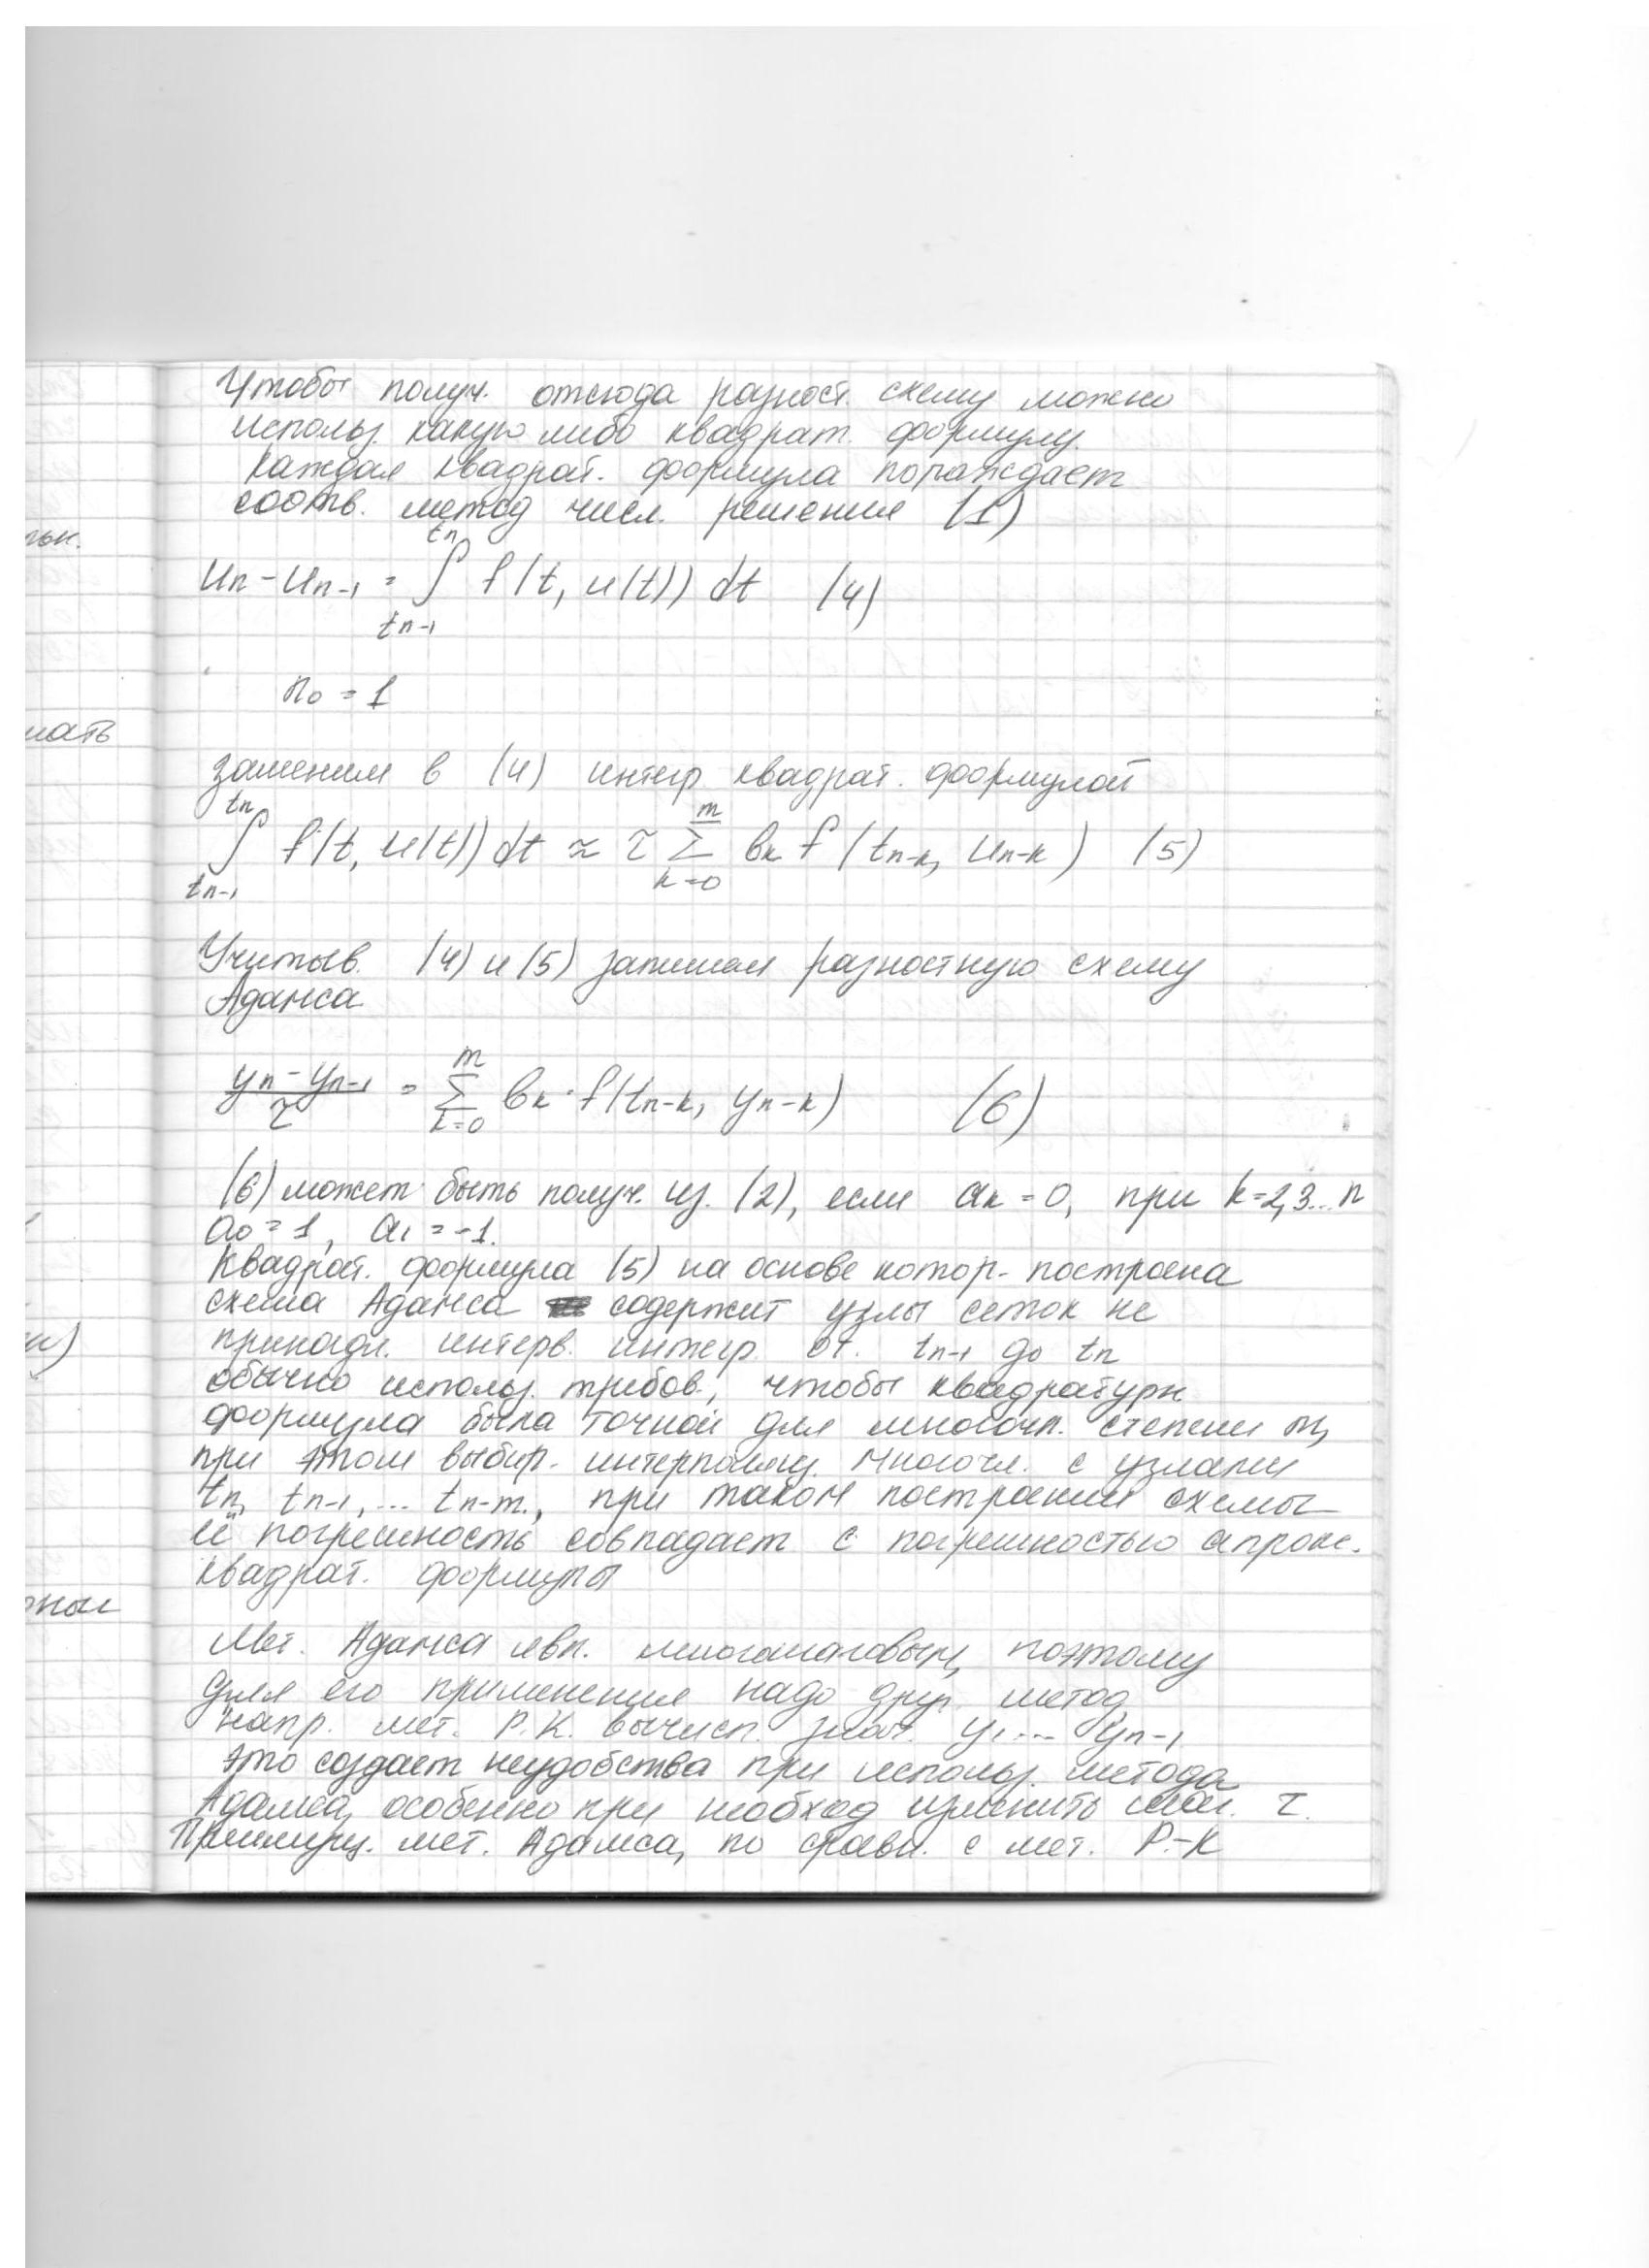 Чтобы получ. отсюда разност. схему можно
использ. какую либо квадрат. формулу.
Каждая квадрат. формула порождает
соотв. метод числ. решения (1)
Un - Un-1 = ∫ f(t, u(t)) dt (4)
tn
tn-1
n0 = 1
заменим в (4) интегр. квадрат. формулой
∫ f(t, u(t)) dt ≈ τ Σ bk f(tn-k, Un-k) (5)
tn m
tn-1 k=0
Учитыв. (4) и (5) запишем разностную схему
Адамса
(yn - yn-1)/τ = Σ bk · f(tn-k, yn-k) (6)
m
k=0
(6) может быть получ. из. (2), если ak = 0, при k=2,3...n
a0 = 1, a1 = -1.
Квадрат. формула (5) на основе котор. построена
схема Адамса содержит узлы сеток не
принадл. интерв. интегр. от. tn-1 до tn
обычно использ. требов., чтобы квадратурн.
формула была точной для многочл. степени m,
при этом выбир. интерполяц. многочл. с узлами
tn, tn-1, ... tn-m., при таком построении схемы
её погрешность совпадает с погрешностью апрокс.
квадрат. формулы
Мет. Адамса явл. многошаговым, поэтому
для его применения надо друг. метод
напр. мет. Р.К. вычисл. знач. y1 ... yn-1
это создает неудобства при использ. метода
Адамса, особенно при необход изменить шаг. τ.
Преимущ. мет. Адамса, по сравн. с мет. Р-К
льн.
мать